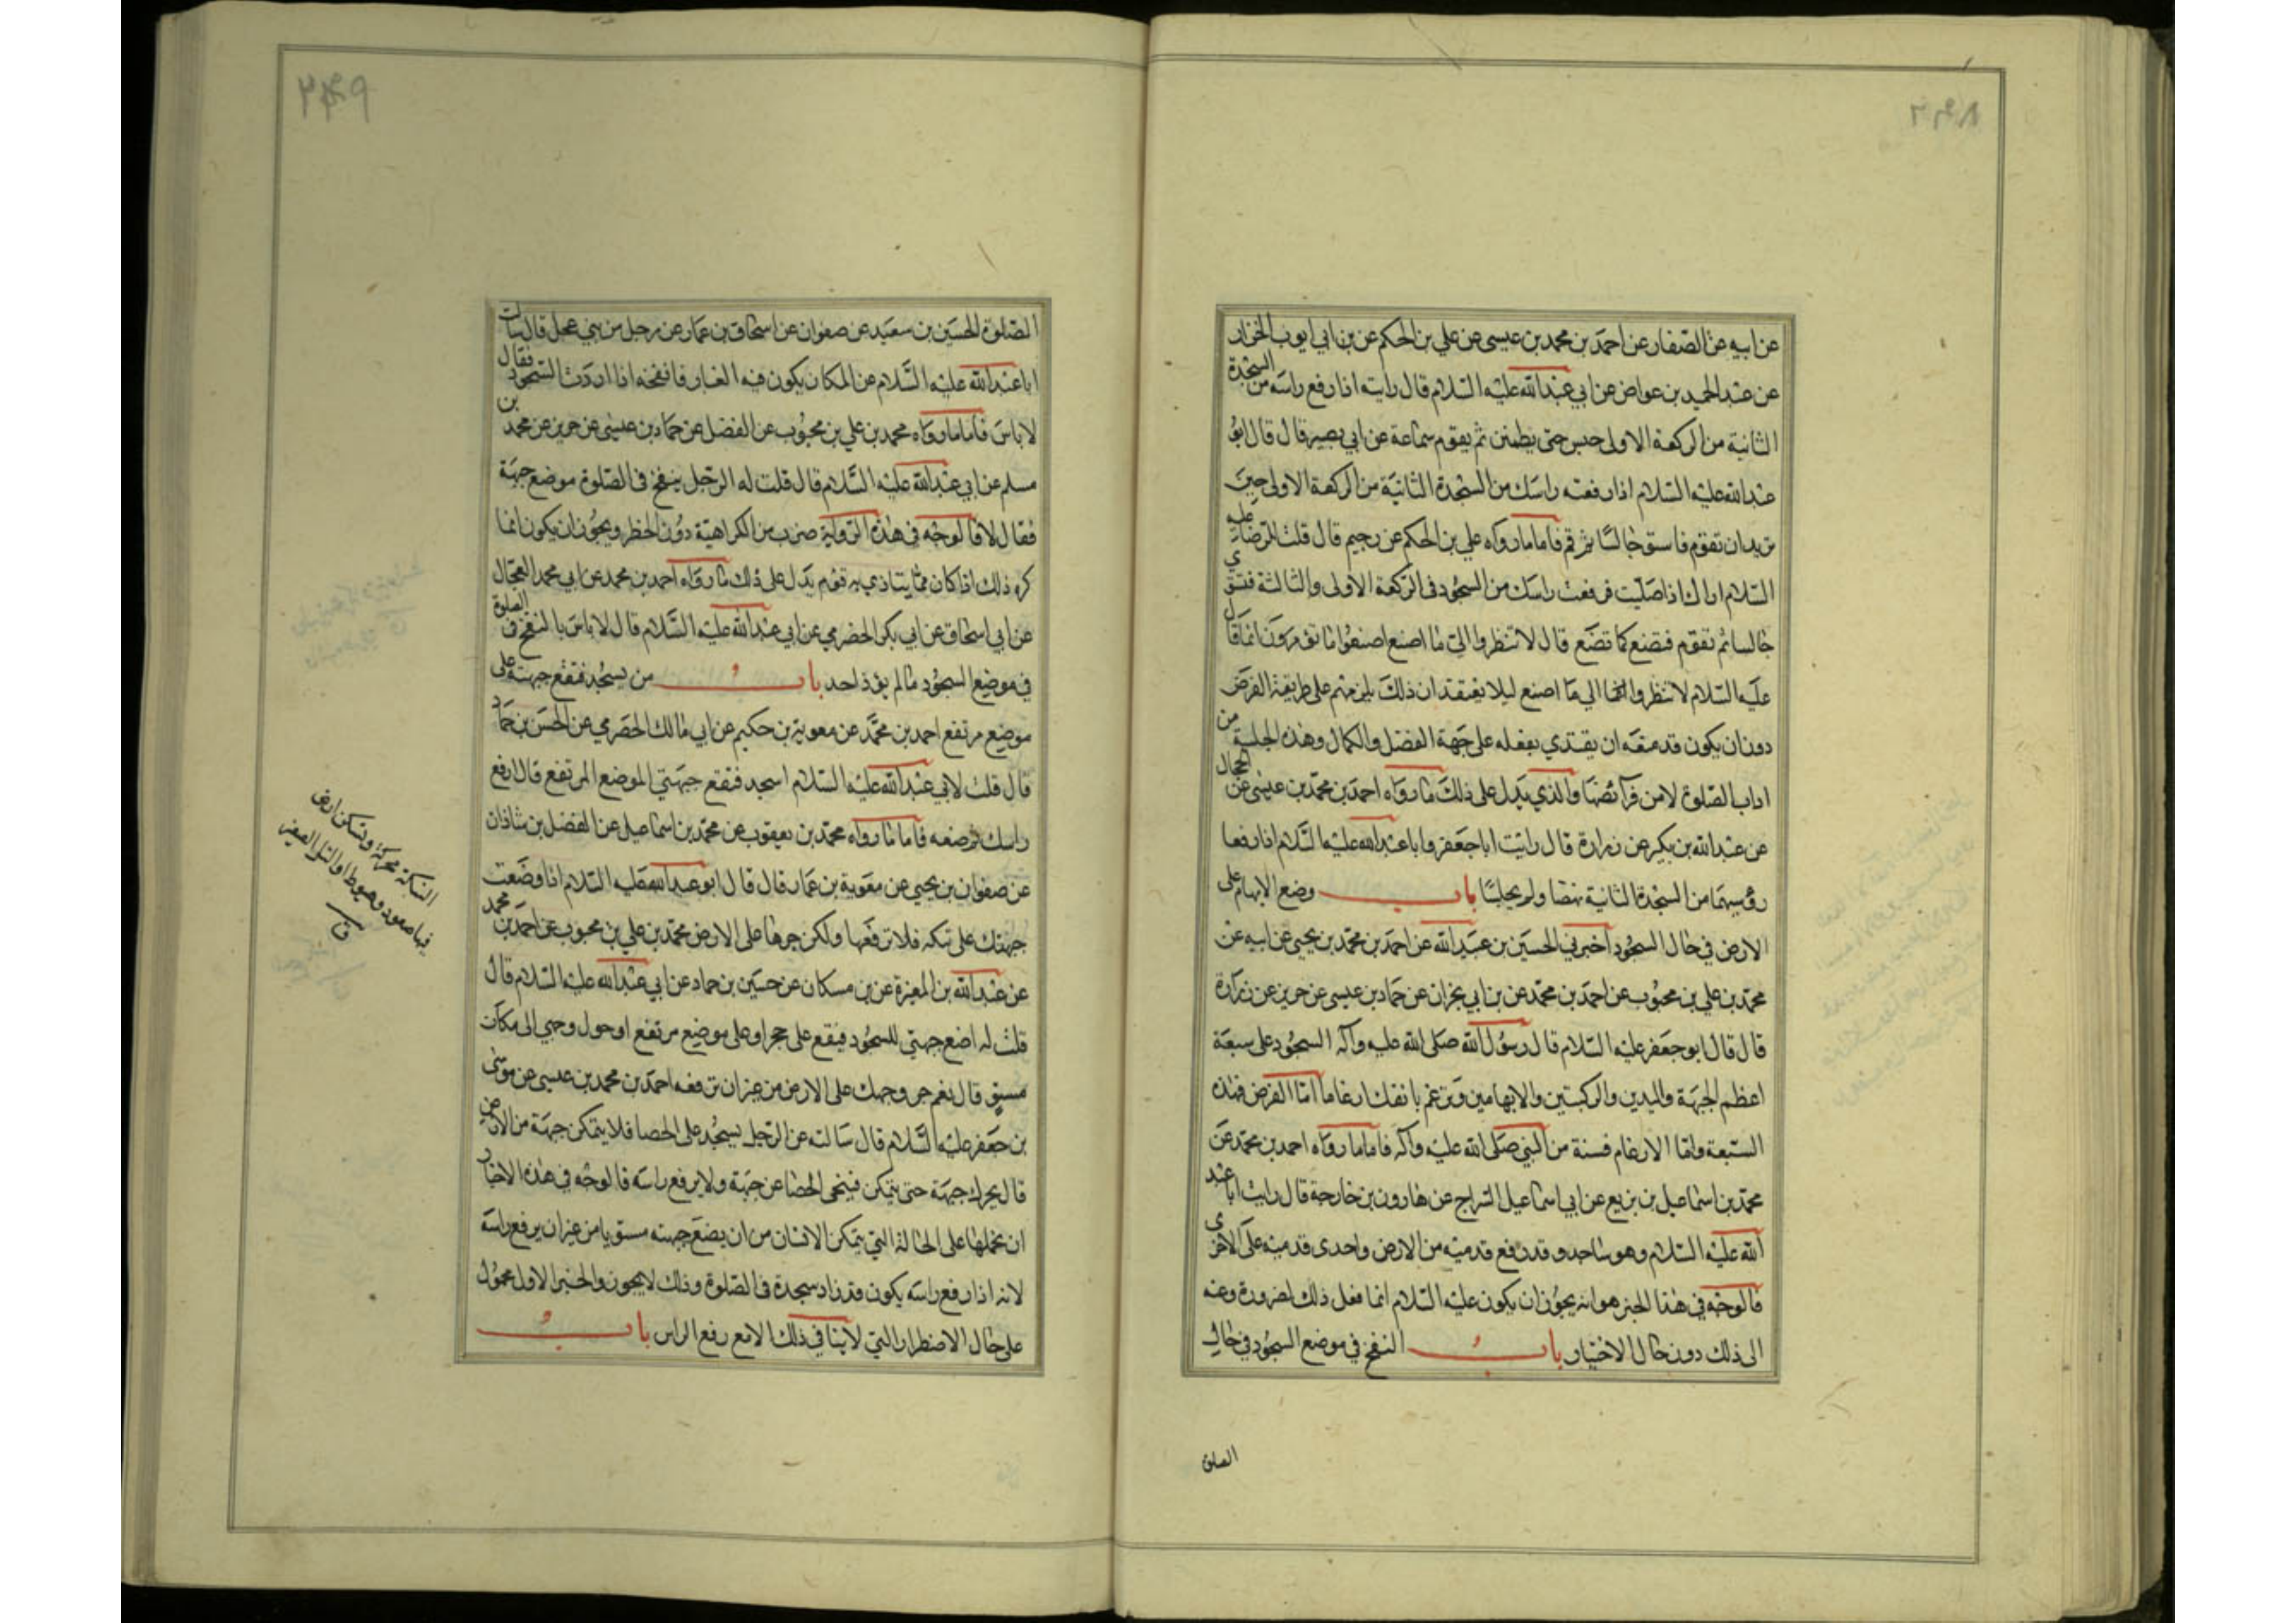 عن ابيه عن الصفار عن احمد بن محمد بن عيسى عن علي بن الحكم عن بن ابي ايوب الخزاز
عن عبد الحميد بن عواض عن ابي عبد الله عليه السلام قال رايته اذا رفع راسه من السجدة
الثانية من الركعة الاولى جلس حتى يطمئن ثم يقوم سماعة عن ابي بصير قال قال ابو
عبد الله عليه السلام اذا رفعت راسك من السجدة الثانية من الركعة الاولى حين
تريد ان تقوم فاستو جالسا ثم قم فاما ما رواه علي بن الحكم عن رحيم قال قلت للرضا عليه
السلام اراك اذا صليت فرفعت راسك من السجود في الركعة الاولى والثالثة فتستوي
جالسا ثم تقوم فتصنع كما تصنع قال لا تنظروا الى ما اصنع اصنعوا ما تؤمرون انما قال
عليه السلام لا تنظروا الى ما اصنع ليلا يعتقد ان ذلك يلزمهم على طريقة الفرض
دون ان يكون قد منعه ان يقتدي بفعله على جهة الفضل والكمال وهذه الجلسة من
اداب الصلوة لا من فرائضها والذي يدل على ذلك ما رواه احمد بن محمد بن عيسى عن الحجال
عن عبد الله بن بكير عن زرارة قال رايت ابا جعفر وابا عبد الله عليهما السلام اذا رفعا
رؤسهما من السجدة الثانية نهضا ولم يجلسا باب وضع الابهام على
الارض في حال السجود اخبرني الحسين بن عبيد الله عن احمد بن محمد بن يحيى عن ابيه عن
محمد بن علي بن محبوب عن احمد بن محمد عن بن ابي نجران عن حماد بن عيسى عن حريز عن زرارة
قال قال ابو جعفر عليه السلام قال رسول الله صلى الله عليه وآله السجود على سبعة
اعظم الجبهة واليدين والركبتين والابهامين وترغم بانفك ارغاما اما الفرض فهذه
السبعة واما الارغام فسنة من النبي صلى الله عليه وآله فاما ما رواه احمد بن محمد عن
محمد بن اسماعيل بن بزيع عن ابي اسماعيل السراج عن هارون بن خارجة قال رايت ابا عبد
الله عليه السلام وهو ساجد وقد رفع قدميه من الارض واحدى قدميه على الاخرى
فالوجه في هذا الخبر هو انه يجوز ان يكون عليه السلام انما فعل ذلك لضرورة دعته
الى ذلك دون حال الاختيار باب النفخ في موضع السجود في حال
الصلوة
الصلوة الحسين بن سعيد عن صفوان عن اسحاق بن عمار عن رجل من بني عجل قال سالت
ابا عبد الله عليه السلام عن المكان يكون فيه الغبار فانفخه اذا اردت السجود فقال
لا باس فاما ما رواه محمد بن علي بن محبوب عن الفضل عن حماد بن عيسى عن حريز عن محمد بن
مسلم عن ابي عبد الله عليه السلام قال قلت له الرجل ينفخ في الصلوة موضع جبهته
فقال لا فالوجه في هذه الرواية ضرب من الكراهية دون الحظر ويجوز ان يكون انما
كره ذلك اذا كان مما يتاذي به قوم يدل على ذلك ما رواه احمد بن محمد عن ابي محمد الحجال
عن ابي اسحاق عن ابي بكر الحضرمي عن ابي عبد الله عليه السلام قال لا باس بالنفخ في الصلوة
في موضع السجود ما لم يؤذ احد باب من يسجد فتقع جبهته على
موضع مرتفع احمد بن محمد عن معوية بن حكيم عن ابي مالك الحضرمي عن الحسن بن حماد
قال قلت لابي عبد الله عليه السلام اسجد فتقع جبهتي الموضع المرتفع قال ارفع
راسك ثم ضعه فاما ما رواه محمد بن يعقوب عن محمد بن اسماعيل عن الفضل بن شاذان
عن صفوان بن يحيى عن معوية بن عمار قال قال ابو عبد الله عليه السلام اذا وضعت
جبهتك على نبكة فلا ترفعها ولكن جرها على الارض محمد بن علي بن محبوب عن احمد بن محمد
عن عبد الله بن المغيرة عن بن مسكان عن حسين بن حماد عن ابي عبد الله عليه السلام قال
قلت له اضع جبهتي للسجود فيقع على حجر او على موضع مرتفع احول وجهي الى مكان
مستو قال نعم جر وجهك على الارض من غير ان ترفعه احمد بن محمد بن عيسى عن موسى
بن جعفر عليه السلام قال سالته عن الرجل يسجد على الحصا فلا يتمكن جبهته من الارض
قال يحرك جبهته حتى يتمكن فينحى الحصا عن جبهته ولا يرفع راسه فالوجه في هذه الاخبار
ان نحملها على الحالة التي يتمكن الانسان من ان يضع جبهته مستويا من غير ان يرفع راسه
لانه اذا رفع راسه يكون قد زاد سجدة في الصلوة وذلك لا يجوز والخبر الاول محمول
على حال الاضطرار التي لا يتاتى ذلك الا مع رفع الراس باب
النبكة محركة وتسكن ارض
فيها صعود وهبوط او التل الصغير
ق